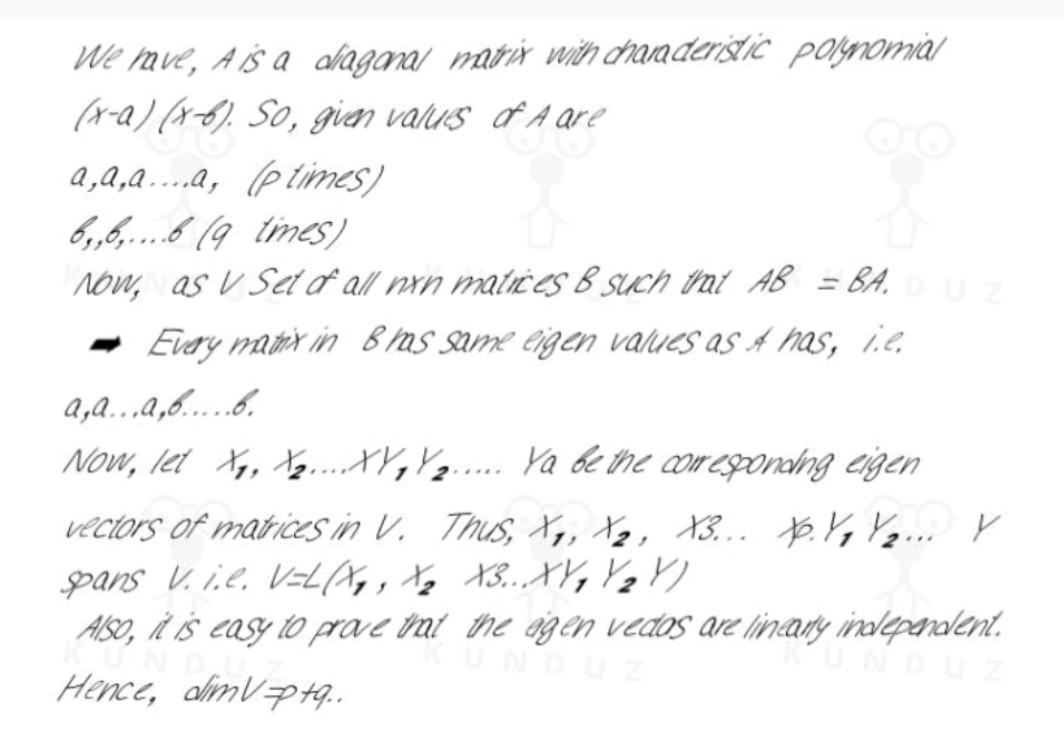 We have, A is a diagonal matrix with characteristic polynomial
(x-a) (x-b). So, given values of A are
a,a,a....a, (p times)
b,,b,....b (q times)
Now, as V Set of all nxn matrices B such that AB = BA.
➡ Every matrix in B has same eigen values as A has, i.e.
a,a...a,b.....b.
Now, let X₁, X₂....XY₁Y₂..... Ya be the corresponding eigen
vectors of matrices in V. Thus, X₁, X₂, X3... Xp.Y₁ Y₂... Y
spans V. i.e. V=L(X₁, X₂ X3...XY₁ Y₂ Y)
Also, it is easy to prove that the eigen vectos are linearly independent.
Hence, dimV=p+q..
KUNDUZ
KUNDUZ
KUNDUZ
KUNDUZ
KUNDUZ
KUNDUZ